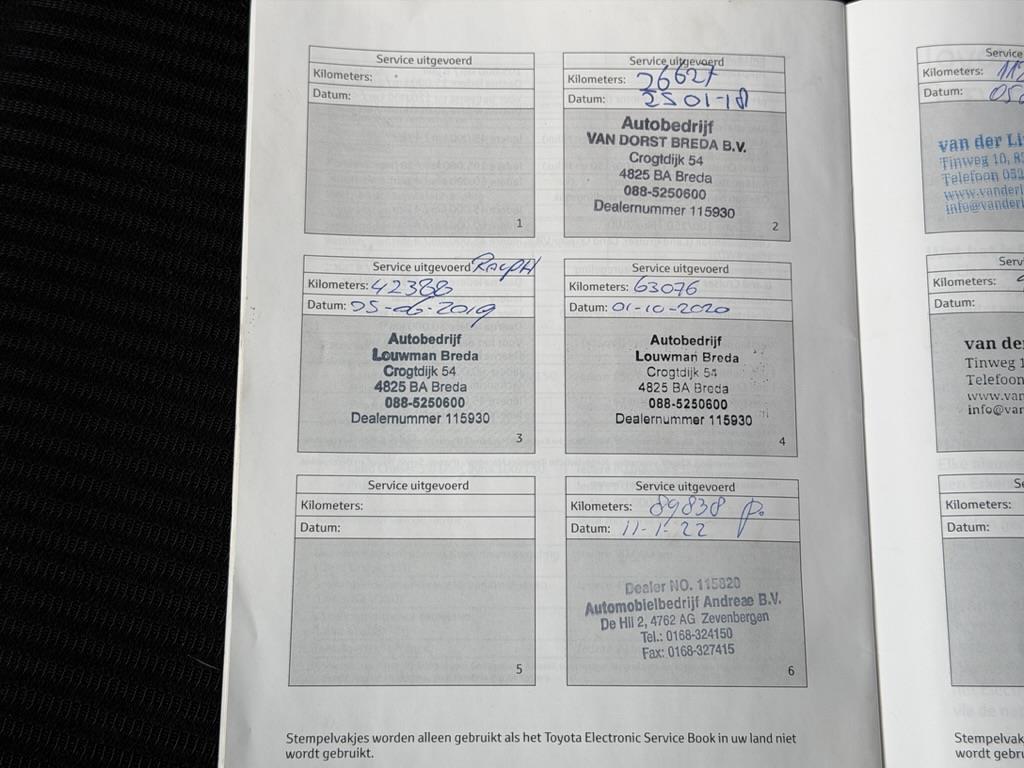 Service uitgevoerd
Kilometers:
Datum:
1
Service uitgevoerd
Kilometers: 26627
Datum: 25 01-18
Autobedrijf
VAN DORST BREDA B.V.
Crogtdijk 54
4825 BA Breda
088-5250600
Dealernummer 115930
2
Service uitgevoerd Ralph
Kilometers: 42388
Datum: 05-06-2019
Autobedrijf
Louwman Breda
Crogtdijk 54
4825 BA Breda
088-5250600
Dealernummer 115930
3
Service uitgevoerd
Kilometers: 63076
Datum: 01-10-2020
Autobedrijf
Louwman Breda
Crogtdijk 54
4825 BA Breda
088-5250600
Dealernummer 115930
4
Service uitgevoerd
Kilometers:
Datum:
5
Service uitgevoerd
Kilometers: 89838 p.
Datum: 11-1-22
Dealer NO. 115820
Automobielbedrijf Andreae B.V.
De Hil 2, 4762 AG Zevenbergen
Tel.: 0168-324150
Fax: 0168-327415
6
Stempelvakjes worden alleen gebruikt als het Toyota Electronic Service Book in uw land niet
wordt gebruikt.
Service
Kilometers:
Datum:
van der Li
Tinweg 10, 8
Telefoon 052
www.vanderl
info@vanderl
Serv
Kilometers:
Datum:
van de
Tinweg 1
Telefoon
www.van
info@var
Se
Kilometers:
Datum:
Stempelvak
wordt gebru